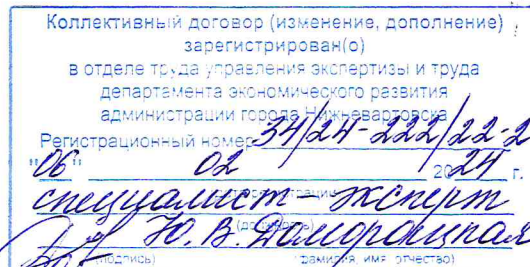 Коллективный договор (изменение, дополнение)
зарегистрирован(о)
в отделе труда управления экспертизы и труда
департамента экономического развития
администрации города Нижневартовска
Регистрационный номер 34/24-222/22-2
"06" 02 2024 г.
специалист - эксперт
(должность)
Ю. В.
(подпись) (фамилия, имя, отчество)